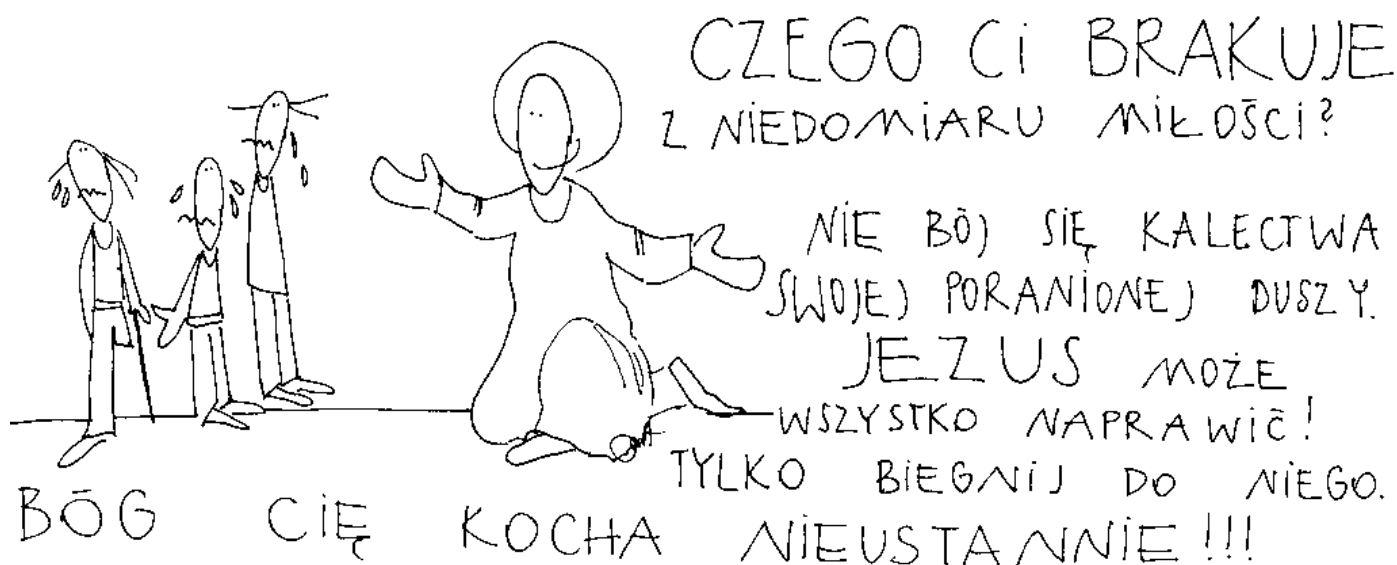 CZEGO Ci BRAKUJE
Z NiEDOMiARU MiŁOŚCi?
NiE BÓJ SiĘ KALECTWA
SWOJEJ PORANiONEJ DUSZY.
JEZUS MOŻE
WSZYSTKO NAPRAWiĆ!
TYLKO BiEGNiJ DO NiEGO.
BÓG CiĘ KOCHA NiEUSTANNiE!!!